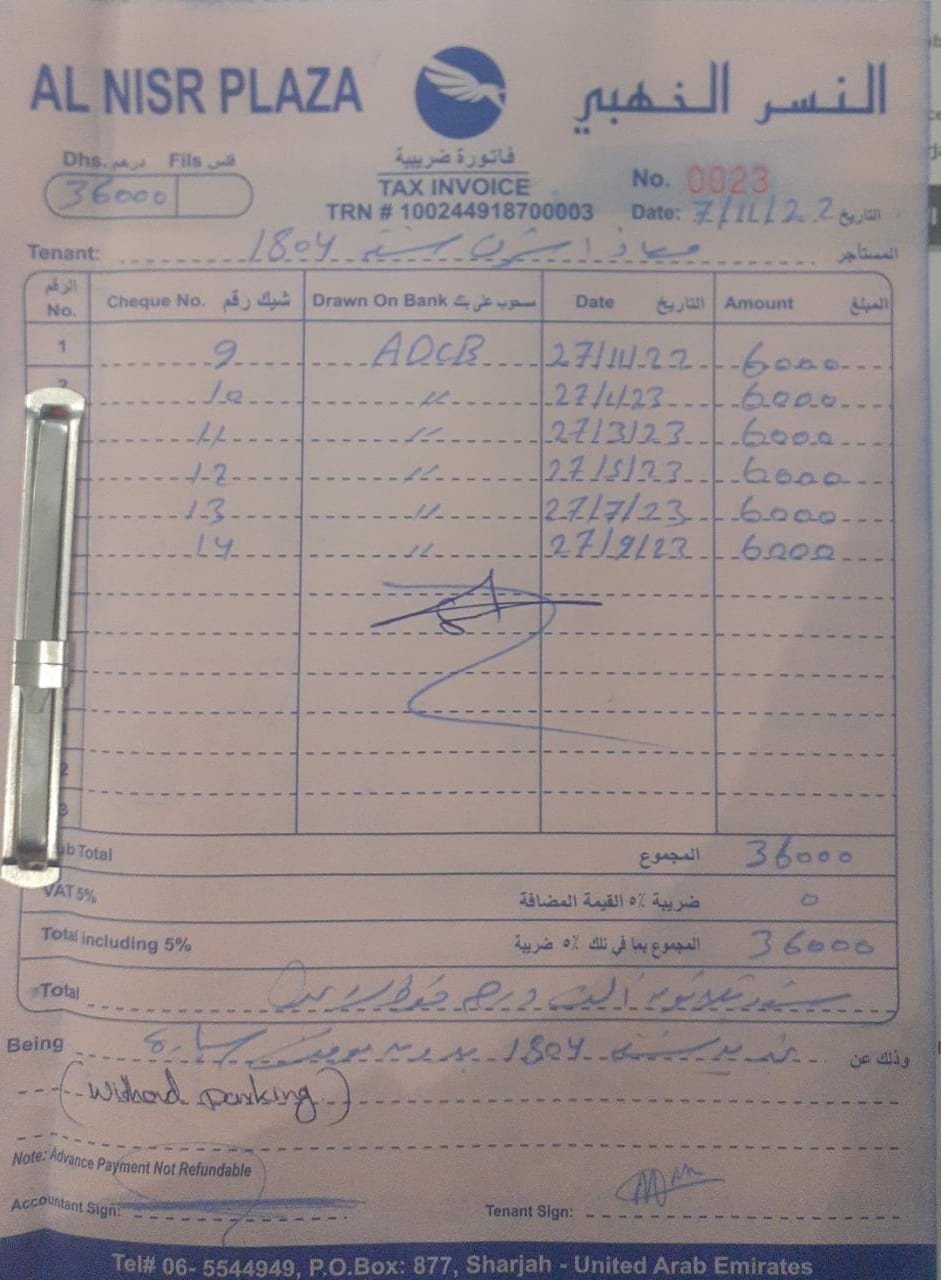 AL NISR PLAZA
النسر الذهبي
Dhs. درهم Fils فلس
36000
فاتورة ضريبية
TAX INVOICE
TRN # 100244918700003
No. 0023
Date: 7/11/22 التاريخ
Tenant: 1804 شقة المستأجر
الرقم No. Cheque No. شيك رقم Drawn On Bank مسحوب على بنك Date التاريخ Amount المبلغ
1 9 ADCB 27/11/22 6000
10 〃 27/1/23 6000
11 〃 27/3/23 6000
12 〃 27/5/23 6000
13 〃 27/7/23 6000
14 〃 27/9/23 6000
Total المجموع 36000
VAT 5% ضريبة ٥٪ القيمة المضافة 0
Total including 5% المجموع بما في ذلك ٥٪ ضريبة 36000
Total ستة وثلاثون ألف درهم فقط لا غير
Being وذلك عن تجديد شقة 1804 بدون موقف سيارة
(without parking)
Note: Advance Payment Not Refundable
Accountant Sign:
Tenant Sign:
Tel# 06- 5544949, P.O.Box: 877, Sharjah - United Arab Emirates